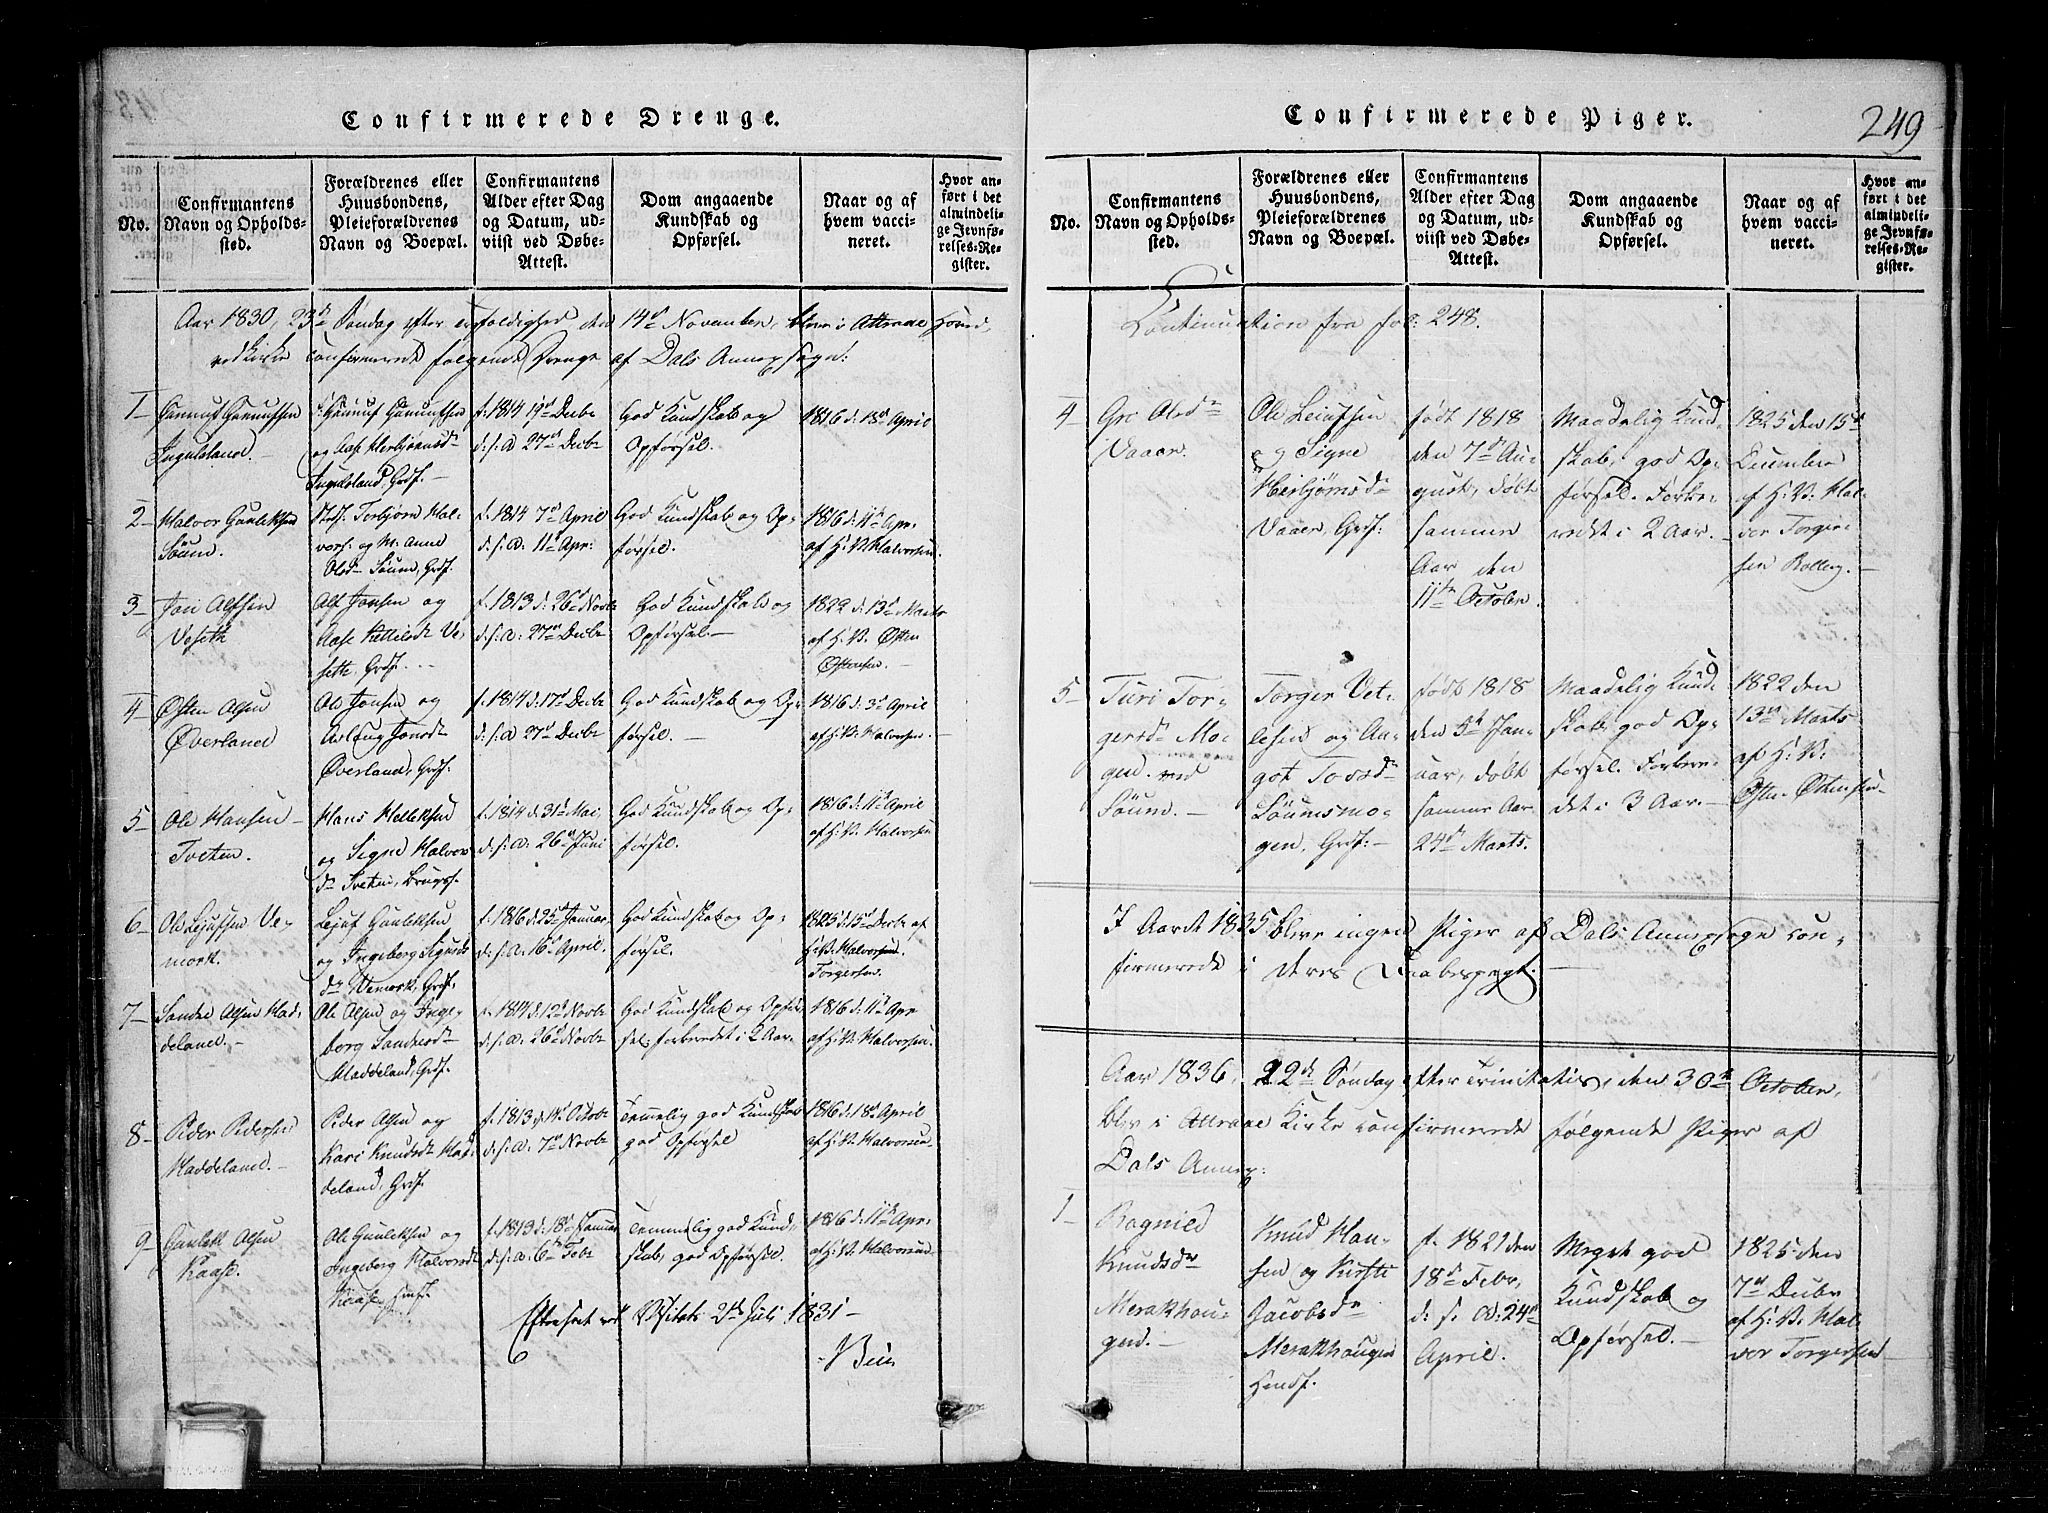 Confirmerede Drenge.
No.
Confirmantens
Navn og Opholds-
sted.
Forældrenes eller
Huusbondens,
Pleieforældrenes
Navn og Boepæl.
Confirmantens
Alder efter Dag
og Datum, ud-
viist ved Døbe-
Attest.
Dom angaaende
Kundskab og
Opførsel.
Naar og af
hvem vacci-
neret.
Hvor an-
ført i det
almindeli-
ge Jevnfø-
relses-Re-
gister.
Aar 1830, 23de Søndag efter den 14de November, blev i Attraae Hoved-
ved Kirke confirmeret følgende Drenge af Dals Annexsogn:
1
Ingulsland.
og Aase Herbjørnsdr
Ingulsland, Grdf.
f. 1814 19de Decbr
d. s. A 27de Decbr
God Kundskab og
Opførsel.
1816 d. 18de April
2
Halvor Gunleksen
Søum.
Stedf. Torbjørn Hal-
vors. og M. Anne
Olsdr Søum, Grdf.
f. 1814 7de April
d. s. A. 11te Apr:
God Kundskab og Op-
førsel.
1816 d. 11te Apr.
af H. B. Halvorsen
3
Jon Alfsen
Vesetk
Alf Jonsen og
Aase Kittilsdr Ve-
sette, Grdf.
f. 1813 d. 26de Novbr
d. s. A. 27de Decbr
God Kundskab og
Opførsel.
1822 d. 13de Marts
af H. B. Østen
Østensen.
4
Østen Olsen
Øverland
Ole Jonsen og
Aslaug Jonsdr
Øverland, Grdf.
f. 1814 d. 17de Decbr
d. s. A 27de Decbr
God Kundskab og Op-
førsel.
1816 d. 3de April
af H. B. Halvorsen.
5
Ole Hansen
Tveten.
Hans Helleksen
og Signe Halvors
dr Tveten, Brugsf.
f. 1814 d. 31te Mai,
d. s. A. 26de Juni
God Kundskab og Op-
førsel.
1816 d. 11te April
af H. B. Halvorsen
6
Ole Lejufsen Ve-
mork.
Lejuf Gunleksen
og Ingeborg Sigurds
dr Wemork, Grdf.
f. 1816 d. 25de Januar
d. s. A. 16de April.
God Kundskab og Op-
førsel.
1825 d. 15de Decbr af
H. B. Halvorsen.
Torgersen.
7
Sondre Olsen Had-
deland.
Ole Olsen og Inge-
borg Sondresdr
Haddeland, Grdf.
f. 1814 d. 12te Novbr
d. s. A. 26de Novbr
God Kundskab og Opfør-
sel. forberedet i 2 Aar.
1816 d. 11te Apr
af H. B. Halvorsen.
8
Peder Pedersen
Haddeland.
Peder Olsen og
Kari Knudsdr Had-
deland, Grdf.
f. 1813 d. 14de Octobr
d. s. A. 7de Novbr
Temmelig god Kundskab
god Opførsel
1816 d. 18de April
af H. B. Halvorsen
9
Gunlek Olsen
Kaase.
Ole Gunleksen og
Ingeborg Halvorsdr
Kaase, Huusf.
f. 1813 d. 18de Januar
d. s. A. 6te Febr
Temmelig god Kund-
skab, god Opførsel.
1816 d. 11te Apr.
af H. B. Halvorsen
Efterseet ved Visitats 2den Juli 1831
Confirmerede Piger.
249
No.
Confirmantens
Navn og Opholds-
sted.
Forældrenes eller
Huusbondens,
Pleieforældrenes
Navn og Boepæl.
Confirmantens
Alder efter Dag
og Datum, ud-
viist ved Døbe-
Attest.
Dom angaaende
Kundskab og
Opførsel.
Naar og af
hvem vacci-
neret.
Hvor an-
ført i det
almindeli-
ge Jevnfø-
relses-Re-
gister.
Continuation fra fol: 248.
4
Gro Olsdr
Vaaer.
Ole Leiufsen
og Signe
Herbjørnsdr
Vaaer, Grdf:
født 1818
den 7de Au-
gust, døbt
samme
Aar den
11te October.
Maadelig Kund-
skab, god Op-
førsel. Forbe-
redt i 2 Aar.
1825 den 15de
December
af H: B: Hal-
vor Torger-
sen Bolberg.
5
Turi Tor-
gersdr Mo-
gen. ved
Søum.
Torger Vet-
lesen og An-
got Tovsdr
Søumsmo-
gen, Grdf:
født 1818
den 5te Jan-
uar, døbt
samme Aar
24de Marts.
Maadelig Kund-
skab, god Op-
førsel. Forbere-
det i 3 Aar.
1822 den
13de Marts
af H: B:
Østen Østensen
I Aaret 1835 blev ingen Piger af Dals Annexsogn con-
firmerede i deres Daabspagt.
Aar 1836, 22de Søndag efter Trinitatis, den 30te October,
blev i Attraae Kirke confirmerede følgende Piger af
Dals Annex:
1
Ragnild
Knudsdr
Merakhou-
gen.
Knud Han-
sen og Kirsti
Jacobsdr
Merakhougen
Huusf.
f. 1821 den
18de Febr,
d. s. A: 24de
April.
Meget god
Kundskab og
Opførsel.
1825 den
7de Decbr
af H: B: Hal-
vor Torgersen